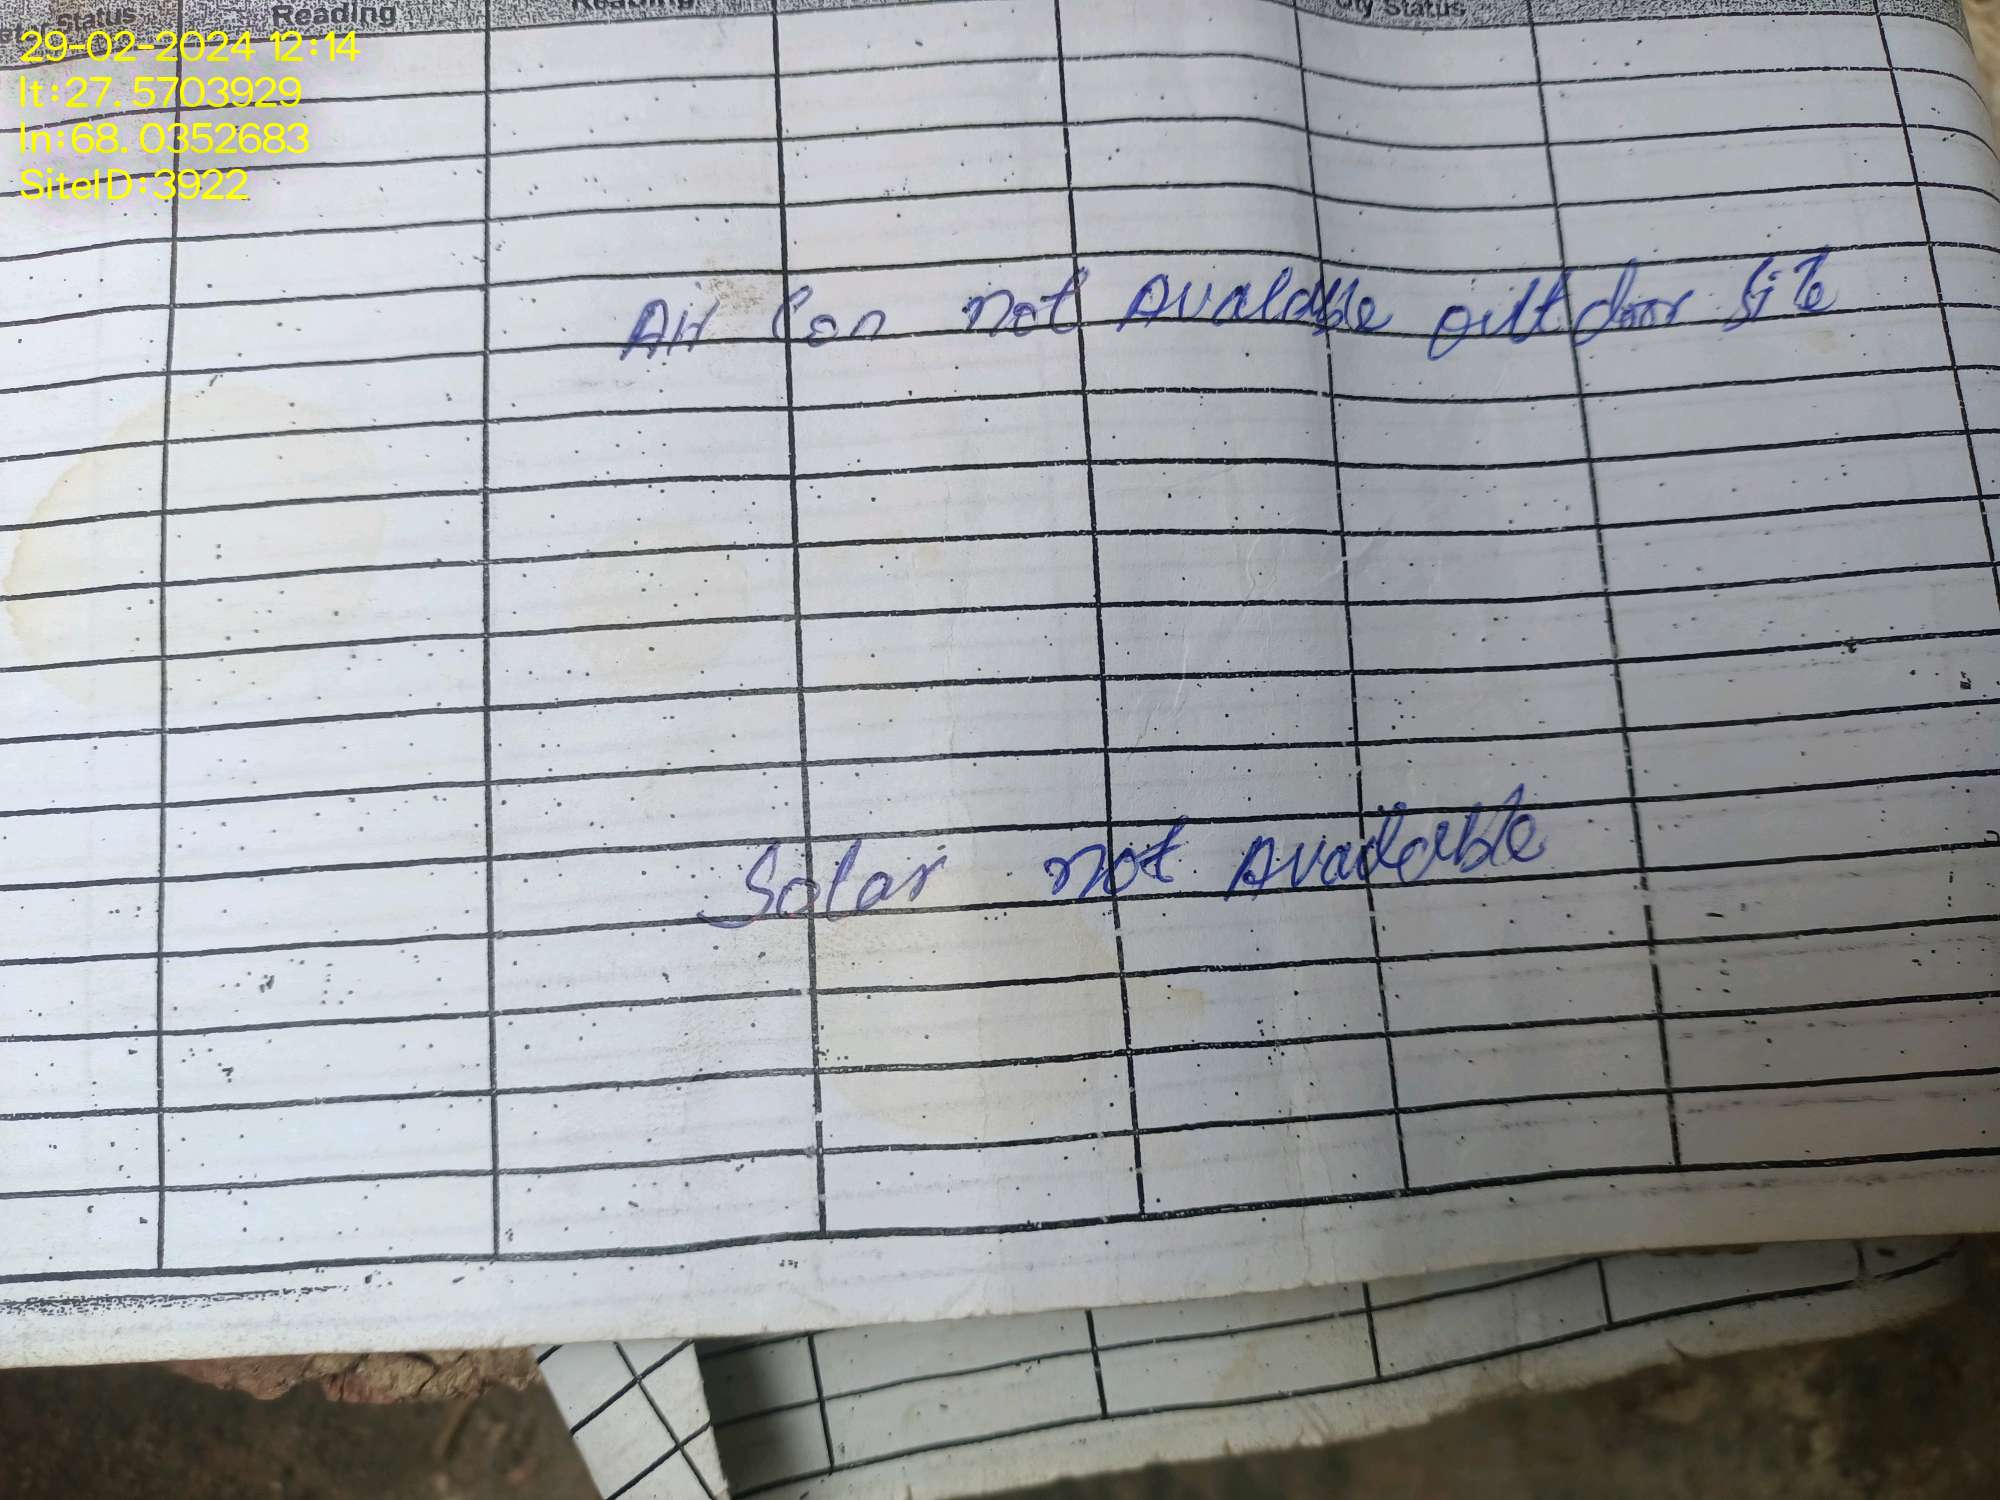 Status Reading Reading City Status
29-02-2024 12:14
lt:27.5703929
ln:68.0352683
SiteID:3922
Air Con not Avalable outdoor site
Solar not Available